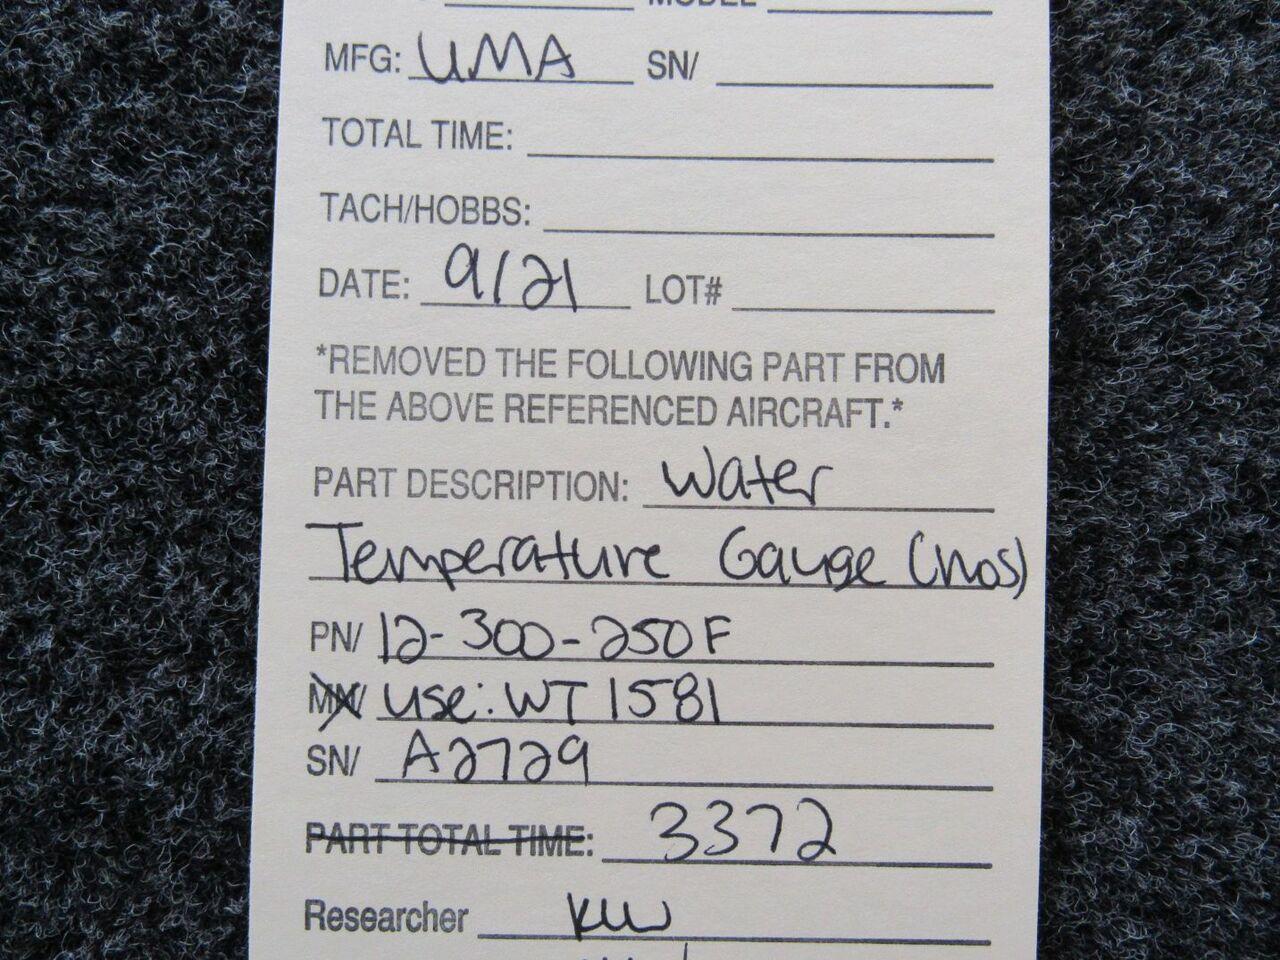 MODEL
MFG: UMA SN/
TOTAL TIME:
TACH/HOBBS:
DATE: 9/21 LOT#
*REMOVED THE FOLLOWING PART FROM
THE ABOVE REFERENCED AIRCRAFT.*
PART DESCRIPTION: Water
Temperature Gauge (nos)
PN/ 12-300-250F
MN/ use: WT 1581
SN/ A2729
PART TOTAL TIME: 3372
Researcher KW